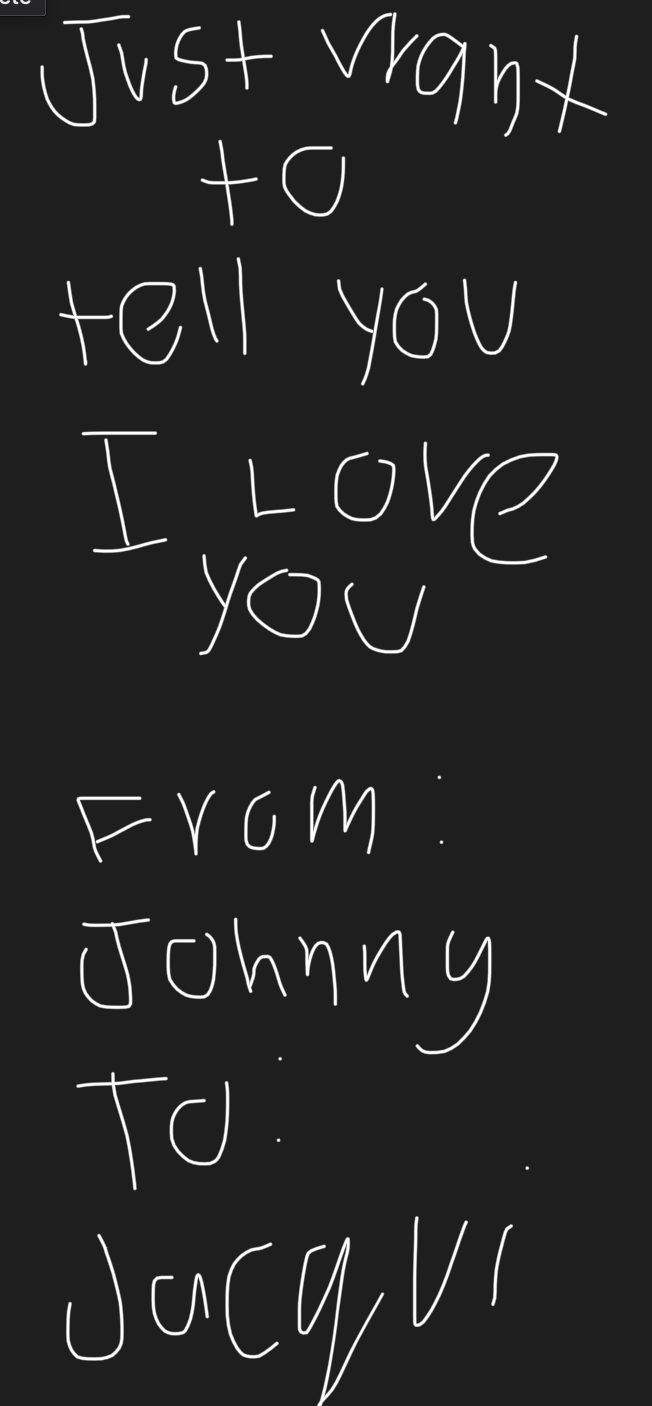 Just want
to
tell you
I Love
you
From:
Johnny
To:
Jacqui